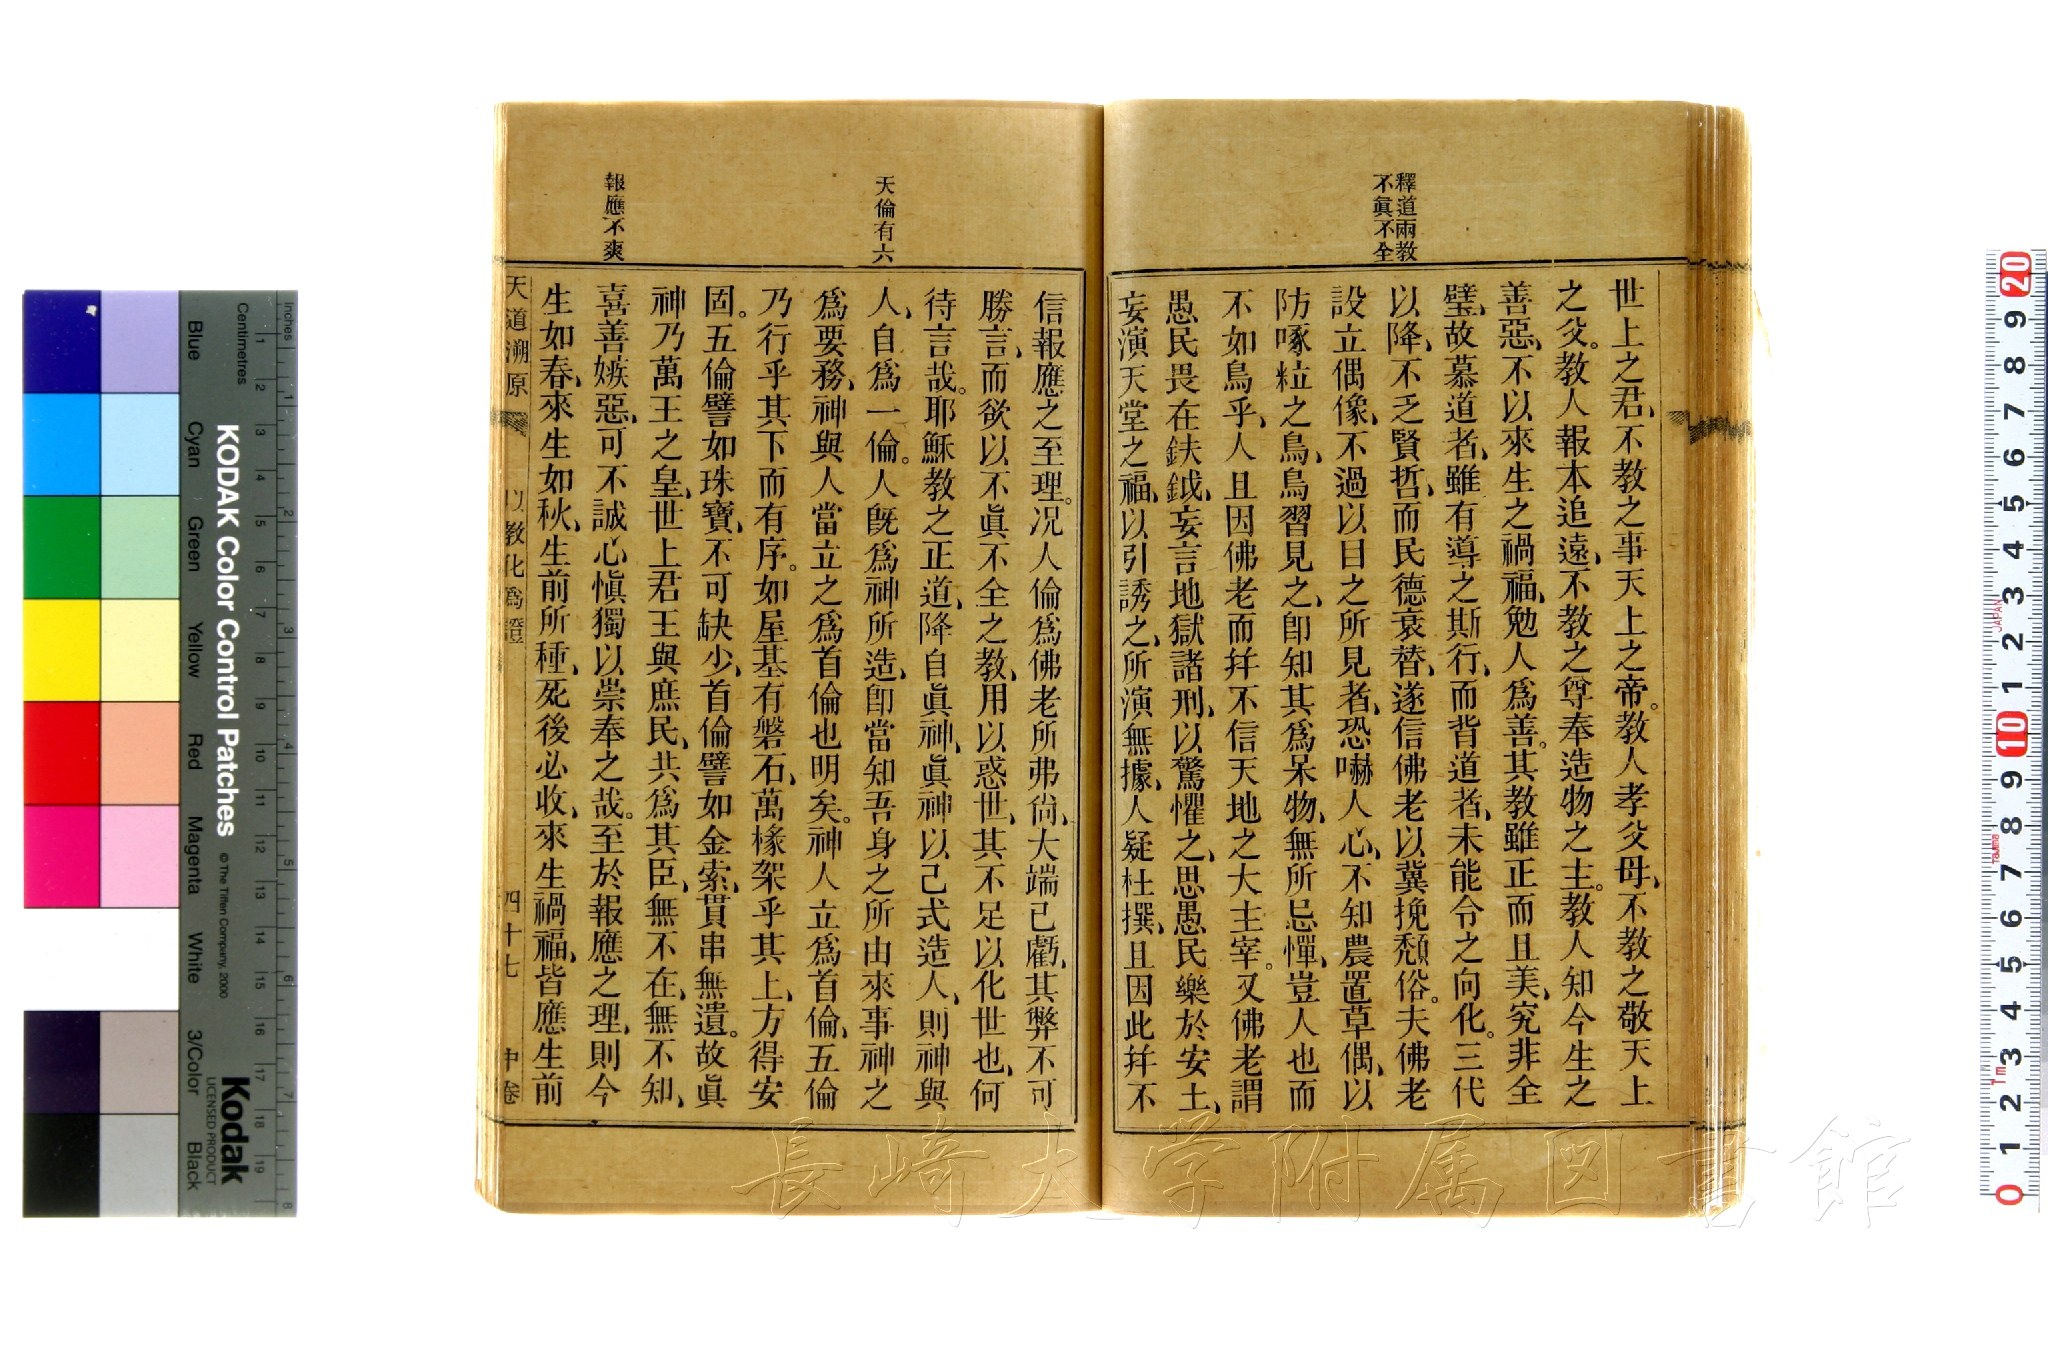 釋道兩教
不眞不全
世上之君、不教之事天上之帝。教人孝父母、不教之敬天上
之父。教人報本追遠、不教之尊奉造物之主。教人知今生之
善惡、不以來生之禍福、勉人爲善。其教雖正而且美、究非全
璧、故慕道者、雖有導之斯行、而背道者、未能令之向化。三代
以降、不乏賢哲、而民德衰替、遂信佛老以冀挽頹俗。夫佛老
設立偶像、不過以目之所見者、恐嚇人心、不知農置草偶、以
防啄粒之鳥、鳥習見之、卽知其爲呆物、無所忌憚、豈人也而
不如鳥乎、人且因佛老而幷不信天地之大主宰。又佛老謂
愚民畏在鈇鉞、妄言地獄諸刑、以驚懼之、思愚民樂於安土、
妄演天堂之福、以引誘之、所演無據、人疑杜撰、且因此幷不
天倫有六
報應不爽
信報應之至理。况人倫爲佛老所弗尙、大端已虧、其弊不可
勝言、而欲以不眞不全之教、用以惑世、其不足以化世也、何
待言哉。耶穌教之正道、降自眞神、眞神以己式造人、則神與
人、自爲一倫。人旣爲神所造、卽當知吾身之所由來、事神之
爲要務、神與人當立之爲首倫也明矣。神人立爲首倫、五倫
乃行乎其下而有序。如屋基有磐石、萬椽架乎其上、方得安
固。五倫譬如珠寶、不可缺少、首倫譬如金索、貫串無遺。故眞
神乃萬王之皇、世上君王與庶民、共爲其臣、無不在、無不知、
喜善嫉惡、可不誠心愼獨以崇奉之哉。至於報應之理、則今
生如春、來生如秋、生前所種、死後必收、來生禍福、皆應生前
天道溯原 以教化爲證 四十七 中卷
長崎大学附属図書館
Inches
Centimetres
KODAK Color Control Patches
© The Tiffen Company, 2000
Kodak
LICENSED PRODUCT
Blue
Cyan
Green
Yellow
Red
Magenta
White
3/Color
Black
1 2 3 4 5 6 7 8 9 10 11 12 13 14 15 16 17 18 19
1 2 3 4 5 6 7 8
20
9
8
7
6
5
4
3
JAPAN
2
1
10
9
8
7
6
5
4
3
2
1
0